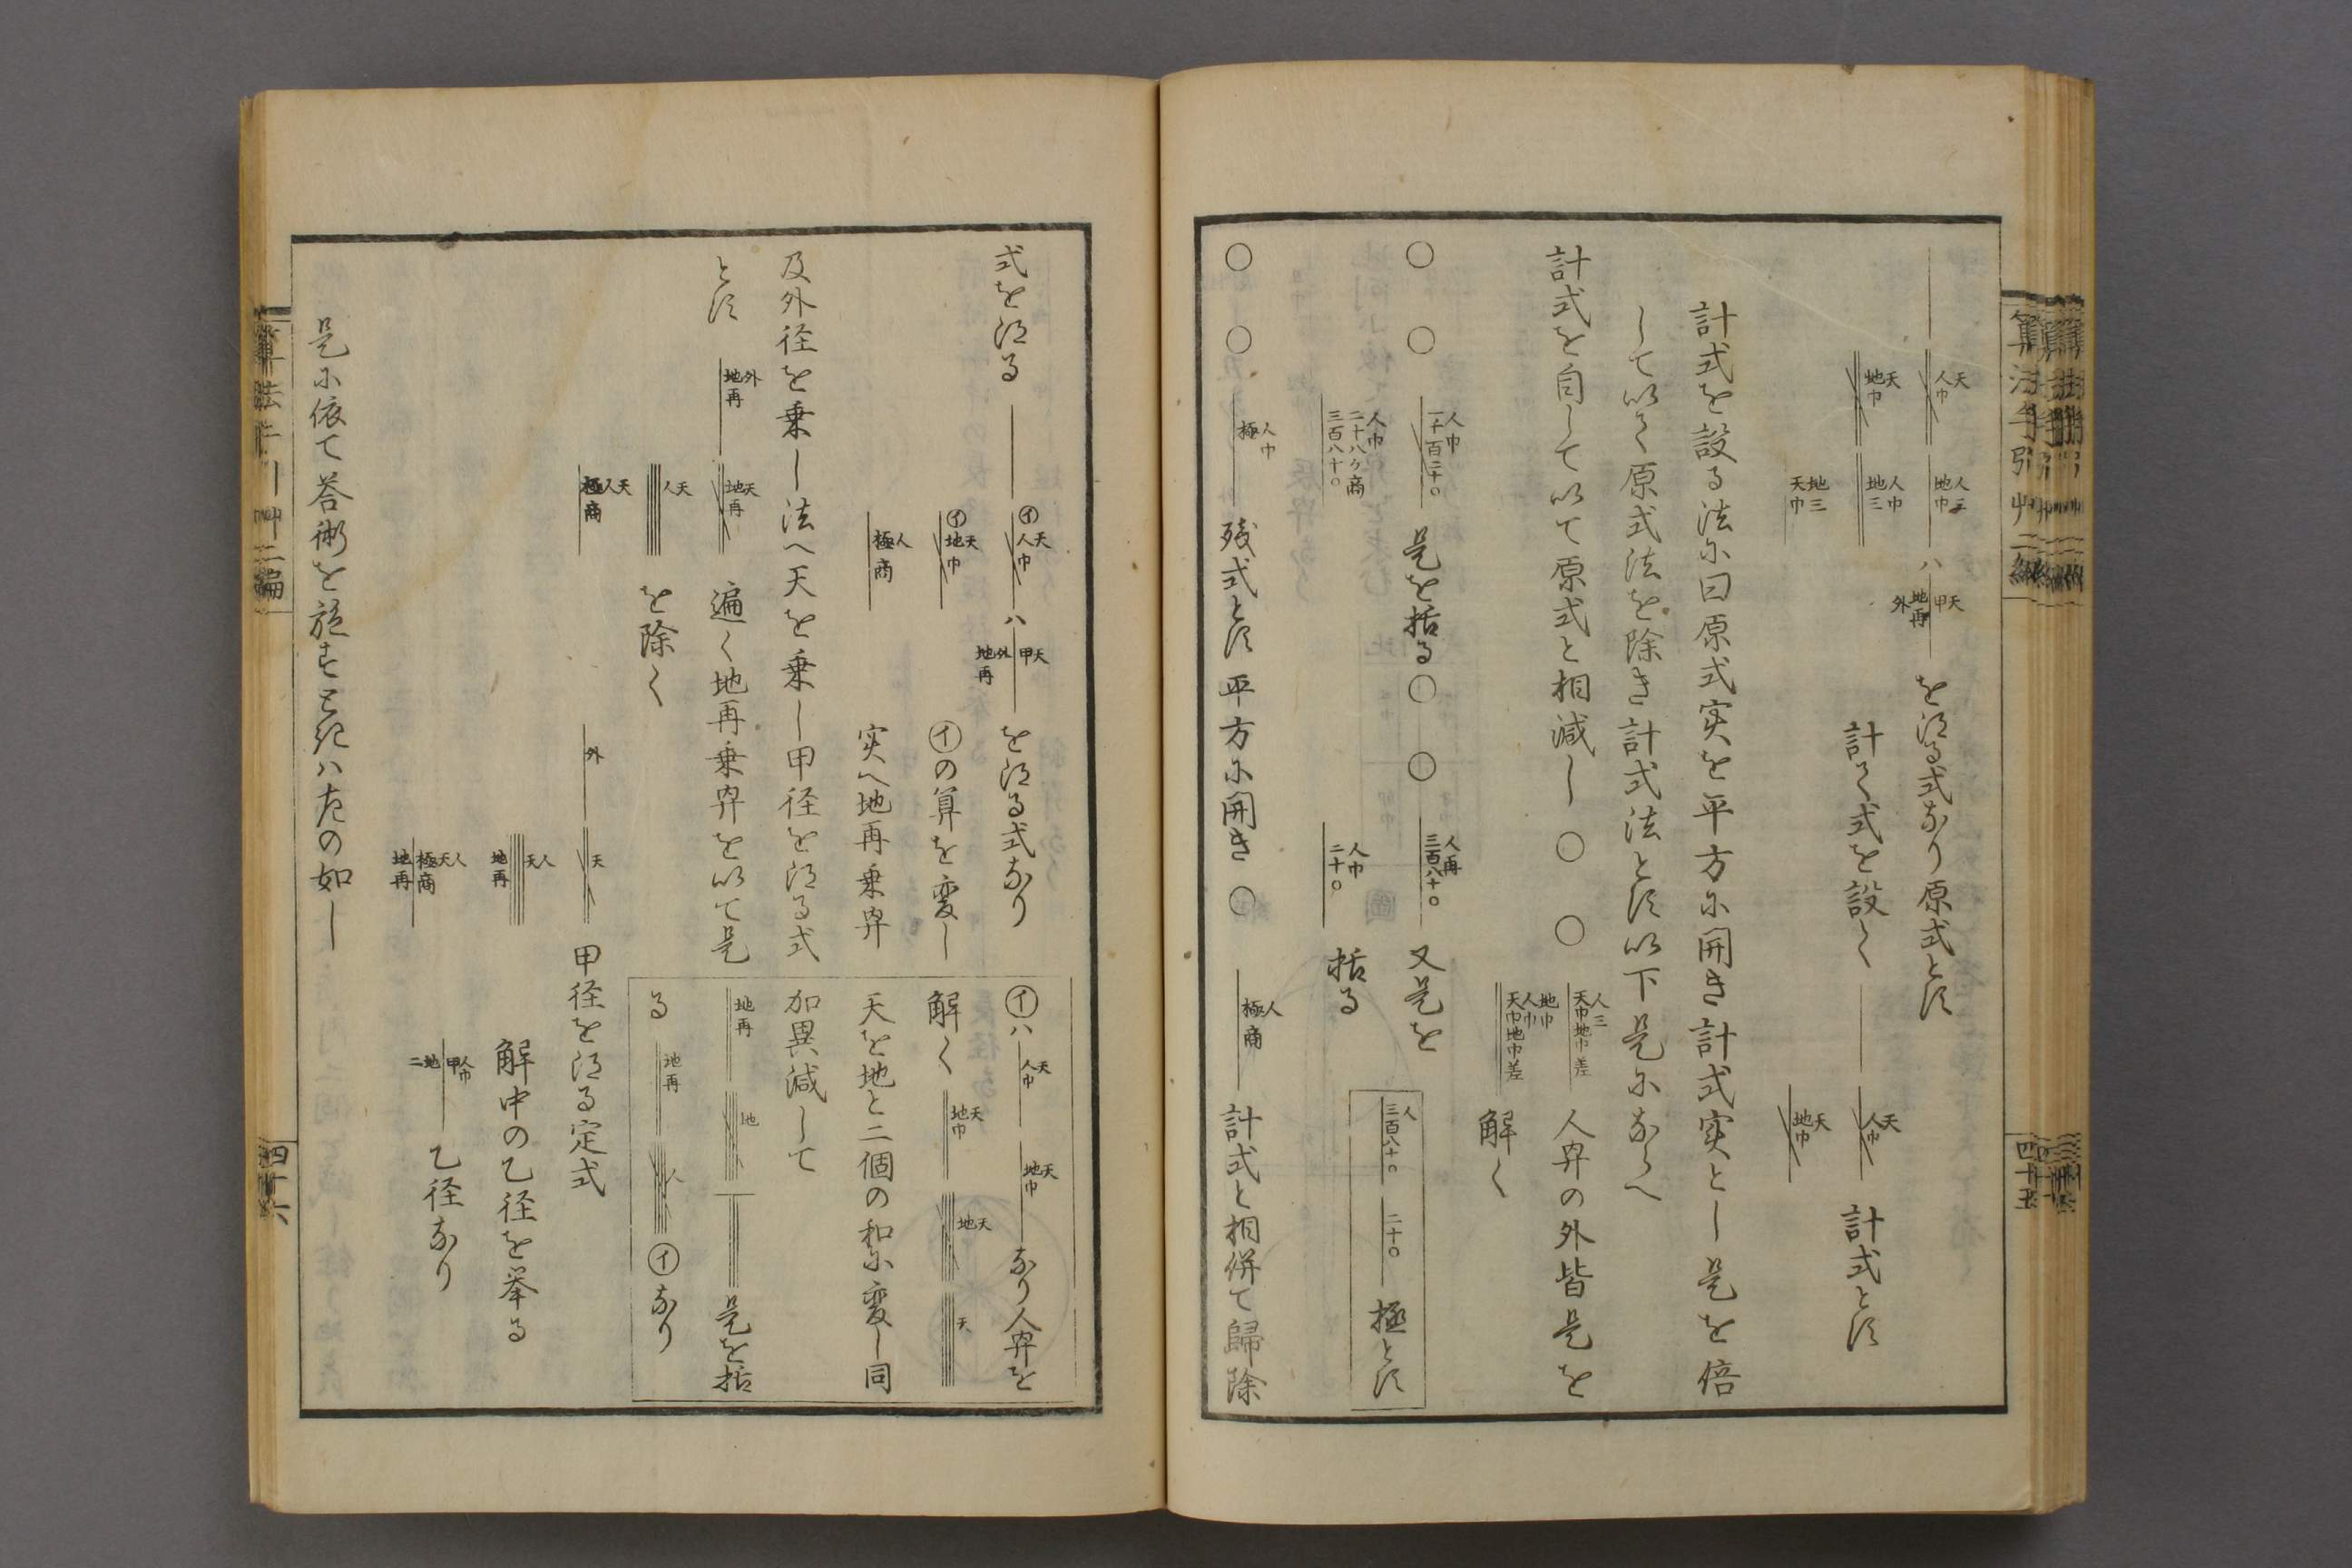 天人巾 人三地巾 ハ 天甲 地再外 を得る式なり原式とす
天地巾 人巾地三 計て式を設く 天人巾 計式とす
地三天巾 天地巾
計式を設る法に曰原式実を平方に開き計式実とし是を倍
して以て原式法を除き計式法とす以下是にならへ
計式を自して以て原式と相減し〇〇 人三天巾地巾差 人幂の外皆是を
地巾人巾天巾地巾差 解く
〇〇 人巾 是を括る〇〇 人再三百八十〇 又是を
人三百八十〇 二十〇 極とす
人巾二十八ケ商三百八十〇 人巾二十〇 括る
〇〇 人巾極 残式とす平方に開き〇 人極商 計式と相併て歸除
算法手引草二編
四十五
式を得る ㋑天人巾 ハ 天甲 外地再 を得る式なり
㋑天地巾 ㋑の算を変し
人極商 実へ地再乗幂
及外径を乗し法へ天を乗し甲径を得る式
とす 外地再 天地再 遍く地再乗幂を以て是
天人 を除く
天人極商
㋑ハ 天人巾 天地巾 なり人幂を
解く 天地巾 天地 天
天を地と二個の和に変し同
加異減して
地再 地 是を括
る 地再 人 ㋑なり
外 天 甲径を得る定式
人天 地再 解中の乙径を挙る
人天極商 地再 人巾甲 地二 乙径なり
是に依て答術を施すときハ左の如し
四十六